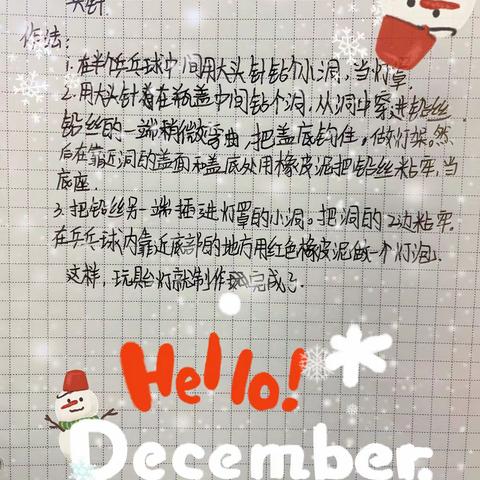 头针.
作法：
1. 在半个乒乓球中间用大头针钻个小洞，当灯罩，
2. 用大头针着在瓶盖中间钻个洞，从洞中穿进铅丝，
铅丝的一端稍微弯曲，把盖底钩住，做灯架。然
后在靠近洞的盖面和盖底处用橡皮泥把铅丝粘牢，当
底座.
3. 把铅丝另一端插进灯罩的小洞。把洞的2边粘牢，
在乒乓球内靠近底部的地方用红色橡皮泥做一个灯泡。
这样，玩具台灯就制作完成了.
Hello!
December.